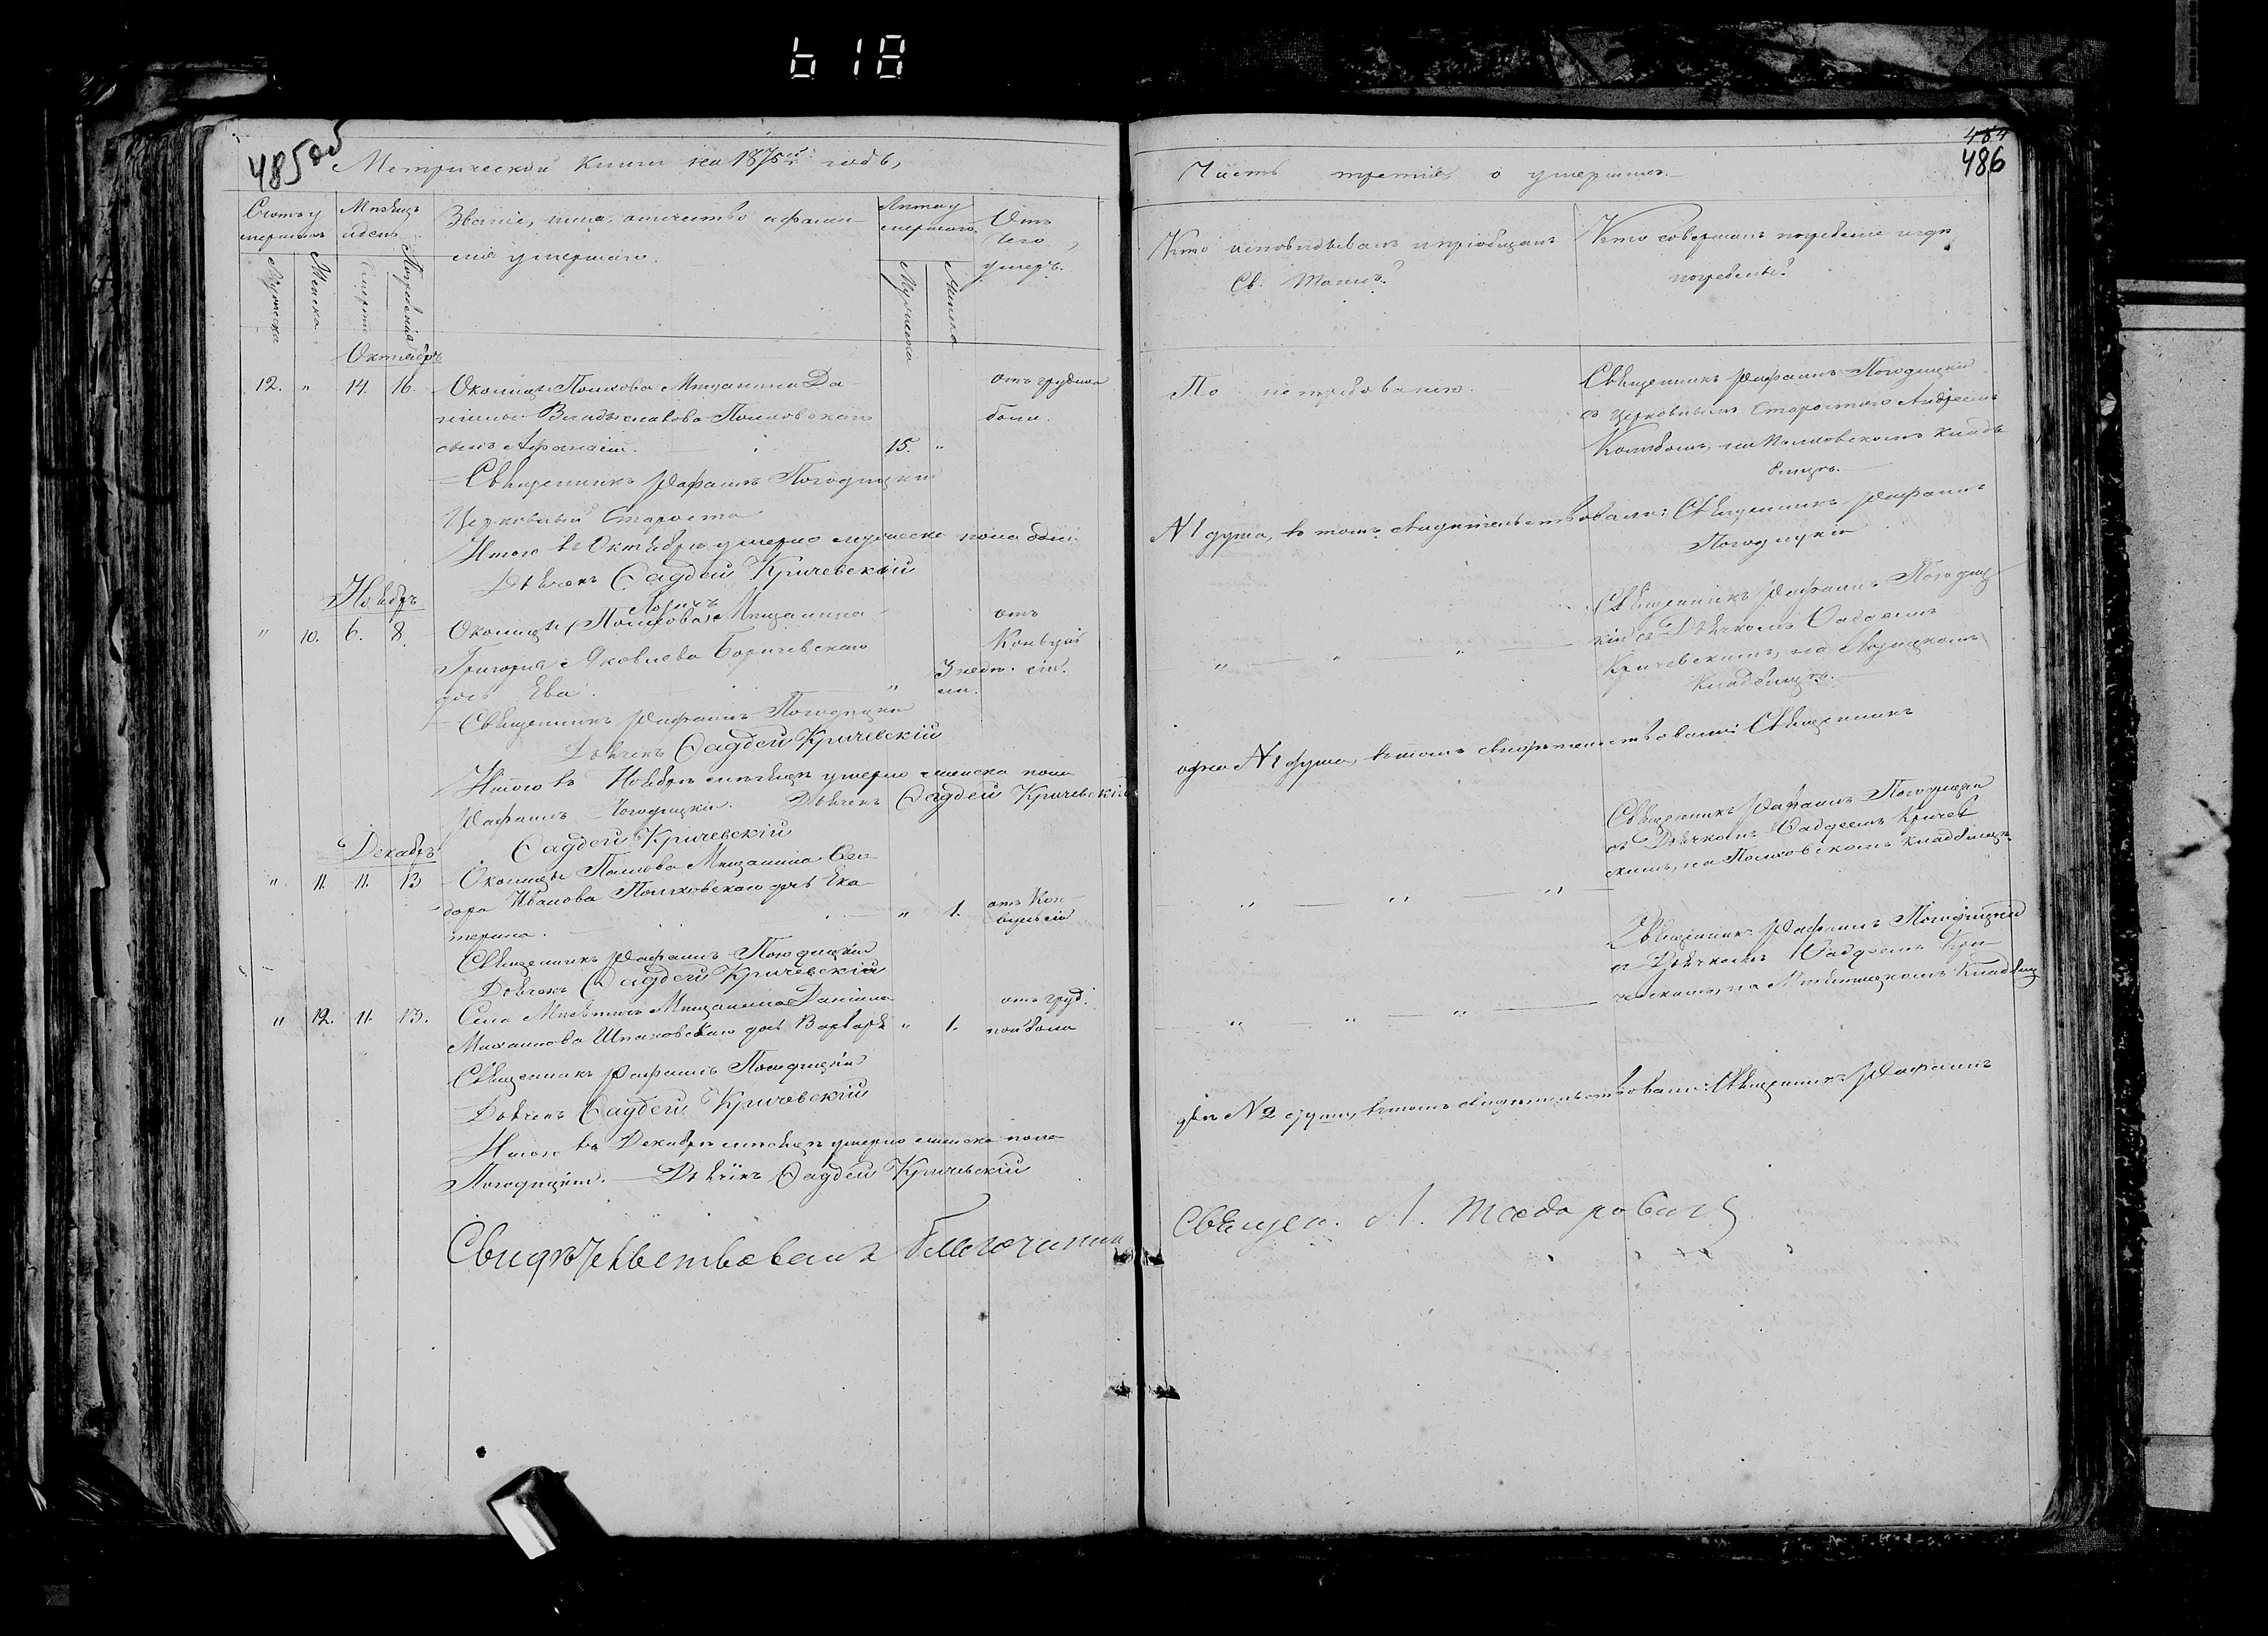 618
485 об
Метрической книги на 1875й годъ,
Счетъ умершихъ
Мужеска
Женска
Мѣсяцъ и день
Смерти
Погребенія
Званіе, имя, отчество и фамилія умершаго.
Лѣта умершаго
Мужеска
Женска
Отъ чего умеръ.
Октябрь
12. " 14. 16. Околицы Полхова Мещанина Да-
ніила Владиславова Полховскаго
сынъ Аѳанасій. 15. "
отъ грудной
боли.
Священникъ Рафаилъ Погодицкій
Церковный Староста
Итого въ Октябрѣ умерло мужеска пола одна
Дьячекъ Фадей Кричевскій
Ноябрь
" 10. 6. 8. Околицы Полхова Мещанина
Григорія Яковлева Боричевскаго
дочь Ева. " 3 недѣ.
отъ
Конвульсіи
Священникъ Рафаилъ Погодицкій
Дьячекъ Фадей Кричевскій
Итого въ Ноябрѣ мѣсяцѣ умерло женска пола
Рафаилъ Погодицкій. Дьячекъ Фадей Кричевскій
Фадей Кричевскій
Декабрь
" 11. 11. 13 Околицы Полхова Мещанина Ѳео-
дора Иванова Полховскаго дочь Ека-
терина. " 1.
отъ Кон-
вульсіи
Священникъ Рафаилъ Погодицкій
Дьячекъ Фадей Кричевскій
" 12. 11. 13. Села Мещанина Даніила
Михаилова Шпаковскаго дочь Варвара " 1.
отъ груд-
ной боли
Священникъ Рафаилъ Погодицкій
Дьячекъ Фадей Кричевскій
Итого въ Декабрѣ мѣсяцѣ умерло женска пола
Погодицкій. Дьячекъ Фадей Кричевскій
Свидѣтельствовалъ Благочинный
484
486
Часть третія, о умершихъ.
Кто исповѣдывалъ и пріобщалъ
Св. Таинъ?
Кто совершалъ погребеніе и гдѣ
погребены?
По нетребованію.
Священникъ Рафаилъ Погодицкій
съ Церковнымъ Старостою Андреемъ
на Полховскомъ клад-
бищѣ.
№ 1 душа, въ томъ свидѣтельствовали: Священникъ Рафаилъ
Погодицкій
" " "
Священникъ Рафаилъ Погодиц-
кій съ Дьячкомъ Фадеемъ
Кричевскимъ, на
кладбищѣ.
одна № 1 душа, въ томъ свидѣтельствовали: Священникъ
" " "
Священникъ Рафаилъ Погодицкій
съ Дьячкомъ Фадеемъ Кричев-
скимъ, на Полховскомъ кладбищѣ.
" " "
Священникъ Рафаилъ Погодицкій
съ Дьячкомъ Фадеемъ Кри-
чевскимъ, на кладбищ
двѣ № 2 души, въ томъ свидѣтельствовали: Священникъ Рафаилъ
Священ. Л. Тоодоровичъ